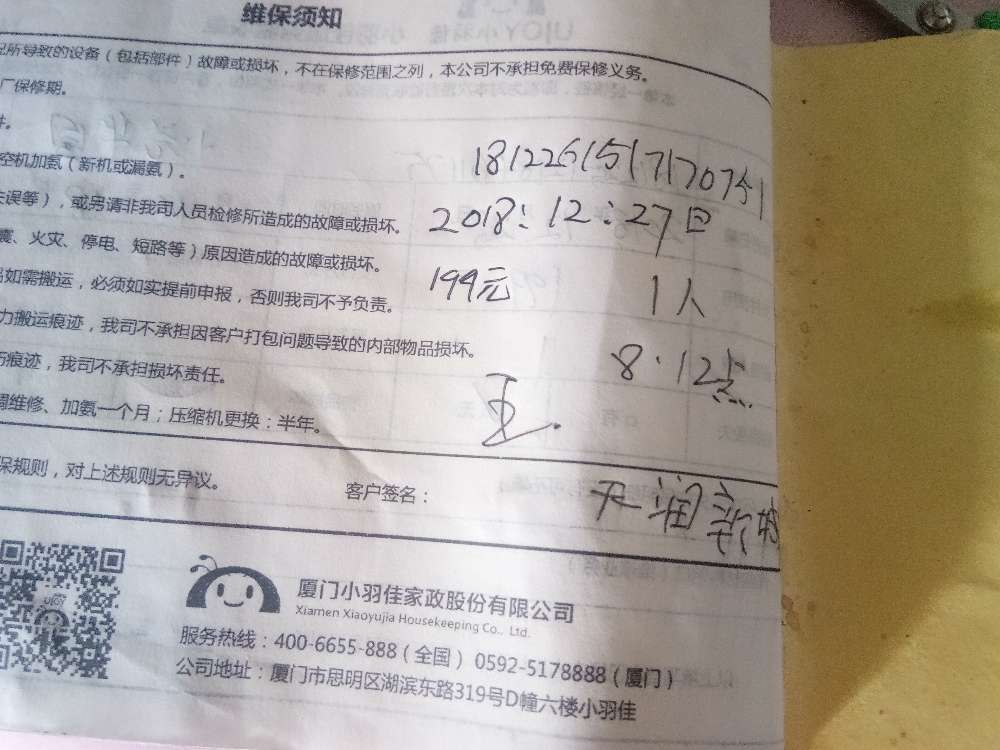 维保须知
所导致的设备（包括部件）故障或损坏，不在保修范围之列，本公司不承担免费保修义务。
厂保修期。
件。
空机加氨（新机或漏氨）。
181226151717075
失误等），或另请非我司人员检修所造成的故障或损坏。
2018：12：27日
震、火灾、停电、短路等）原因造成的故障或损坏。
如需搬运，必须如实提前申报，否则我司不予负责。
194元
1人
力搬运痕迹，我司不承担因客户打包问题导致的内部物品损坏。
8·12点
痕迹，我司不承担损坏责任。
调维修、加氨一个月；压缩机更换：半年。
保规则，对上述规则无异议。
客户签名：
天润新城
UJOY
厦门小羽佳家政股份有限公司
Xiamen Xiaoyujia Housekeeping Co., Ltd.
服务热线：400-6655-888（全国） 0592-5178888（厦门）
公司地址：厦门市思明区湖滨东路319号D幢六楼小羽佳